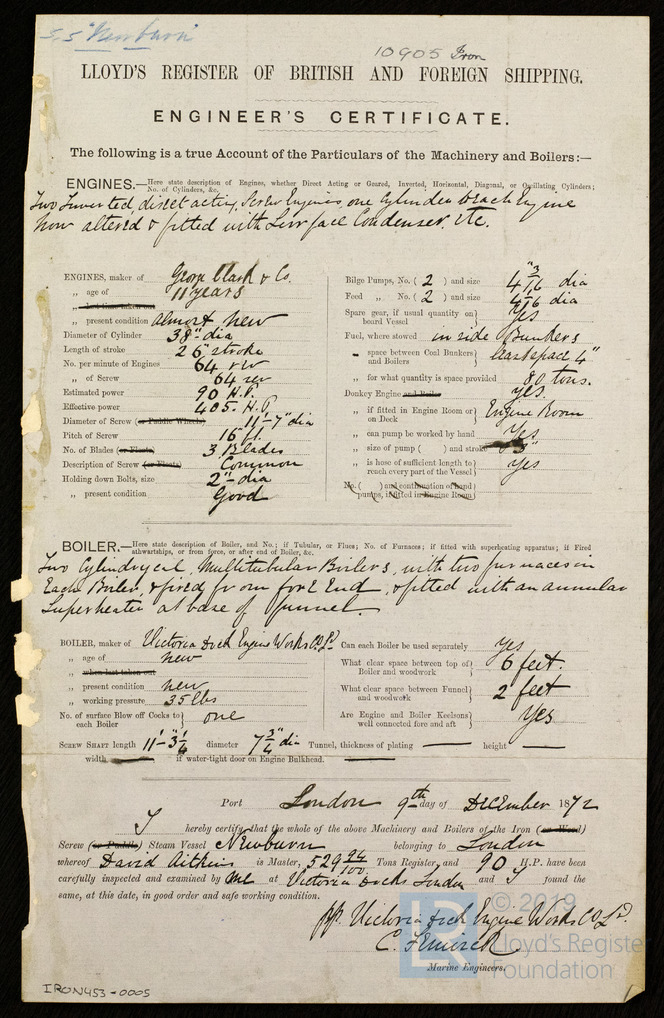 S.S "Newburn"
10905 Iron
LLOYD'S REGISTER OF BRITISH AND FOREIGN SHIPPING.
ENGINEER'S CERTIFICATE.
The following is a true Account of the Particulars of the Machinery and Boilers:—
ENGINES.—Here state description of Engines, whether Direct Acting or Geared, Inverted, Horizontal, Diagonal, or Oscillating Cylinders;
No. of Cylinders, &c.
Two Inverted, direct acting, Screw Engines, one Cylinder Each Engine
Now altered & fitted with Surface Condenser. Etc.
ENGINES, maker of George Clark & Co.
„ age of 11 years
„ present condition almost new
Diameter of Cylinder 38" dia
Length of stroke 26" stroke
No. per minute of Engines 64 rev
„ of Screw 64 rev
Estimated power 90 H.P.
Effective power 405. H.P.
Diameter of Screw (or Paddle Wheels) 11'-7" dia
Pitch of Screw 16 ft.
No. of Blades (or Floats) 3 Blades
Description of Screw (or Floats) Common
Holding down Bolts, size 2" dia
„ present condition Good
Bilge Pumps, No. ( 2 ) and size 4 3/16" dia
Feed „ No. ( 2 ) and size 4 3/16 dia
Spare gear, if usual quantity on board Vessel yes
Fuel, where stowed in side Bunkers
„ space between Coal Bunkers and Boilers least space 4"
„ for what quantity is space provided 80 tons.
Donkey Engine and Boiler yes.
„ if fitted in Engine Room or on Deck Engine Room
„ can pump be worked by hand Yes
„ size of pump ( ) and stroke
„ is hose of sufficient length to reach every part of the Vessel yes
No. ( ) and continuation of hand pumps, if fitted in Engine Room
BOILER.—Here state description of Boiler, and No.; if Tubular, or Flues; No. of Furnaces; if fitted with superheating apparatus; if Fired
athwartships, or from force, or after end of Boiler, &c.
Two Cylindrycal, Multitubular Boilers, with two furnaces in
Each Boiler, & fired from fore End, & fitted with an annular
Superheater at base of funnel.
BOILER, maker of Victoria Dock Engine Works Co. Ld.
„ age of new
„ when last taken out
„ present condition new
„ working pressure 35 lbs
No. of surface Blow off Cocks to each Boiler one
Can each Boiler be used separately yes
What clear space between top of Boiler and woodwork 6 feet.
What clear space between Funnel and woodwork 2 feet
Are Engine and Boiler Keelsons well connected fore and aft Yes
SCREW SHAFT length 11'-3 1/4" diameter 7 3/4" dia Tunnel, thickness of plating — height —
width — if water-tight door on Engine Bulkhead. —
Port London 9th day of December 1872
I hereby certify that the whole of the above Machinery and Boilers of the Iron (or Wood)
Screw (or Paddle) Steam Vessel Newburn belonging to London
whereof David Aitkins is Master, 529 94/100 Tons Register, and 90 H.P. have been
carefully inspected and examined by me at Victoria Docks London and I found the
same, at this date, in good order and safe working condition.
pp. Victoria Dock Engine Works Co Ld.
Marine Engineers.
IRON453-0005
© 2019
LR
Lloyd's Register
Foundation